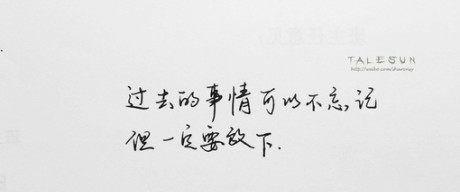 TALESUN
过去的事情可以不忘记
但一定要放下.